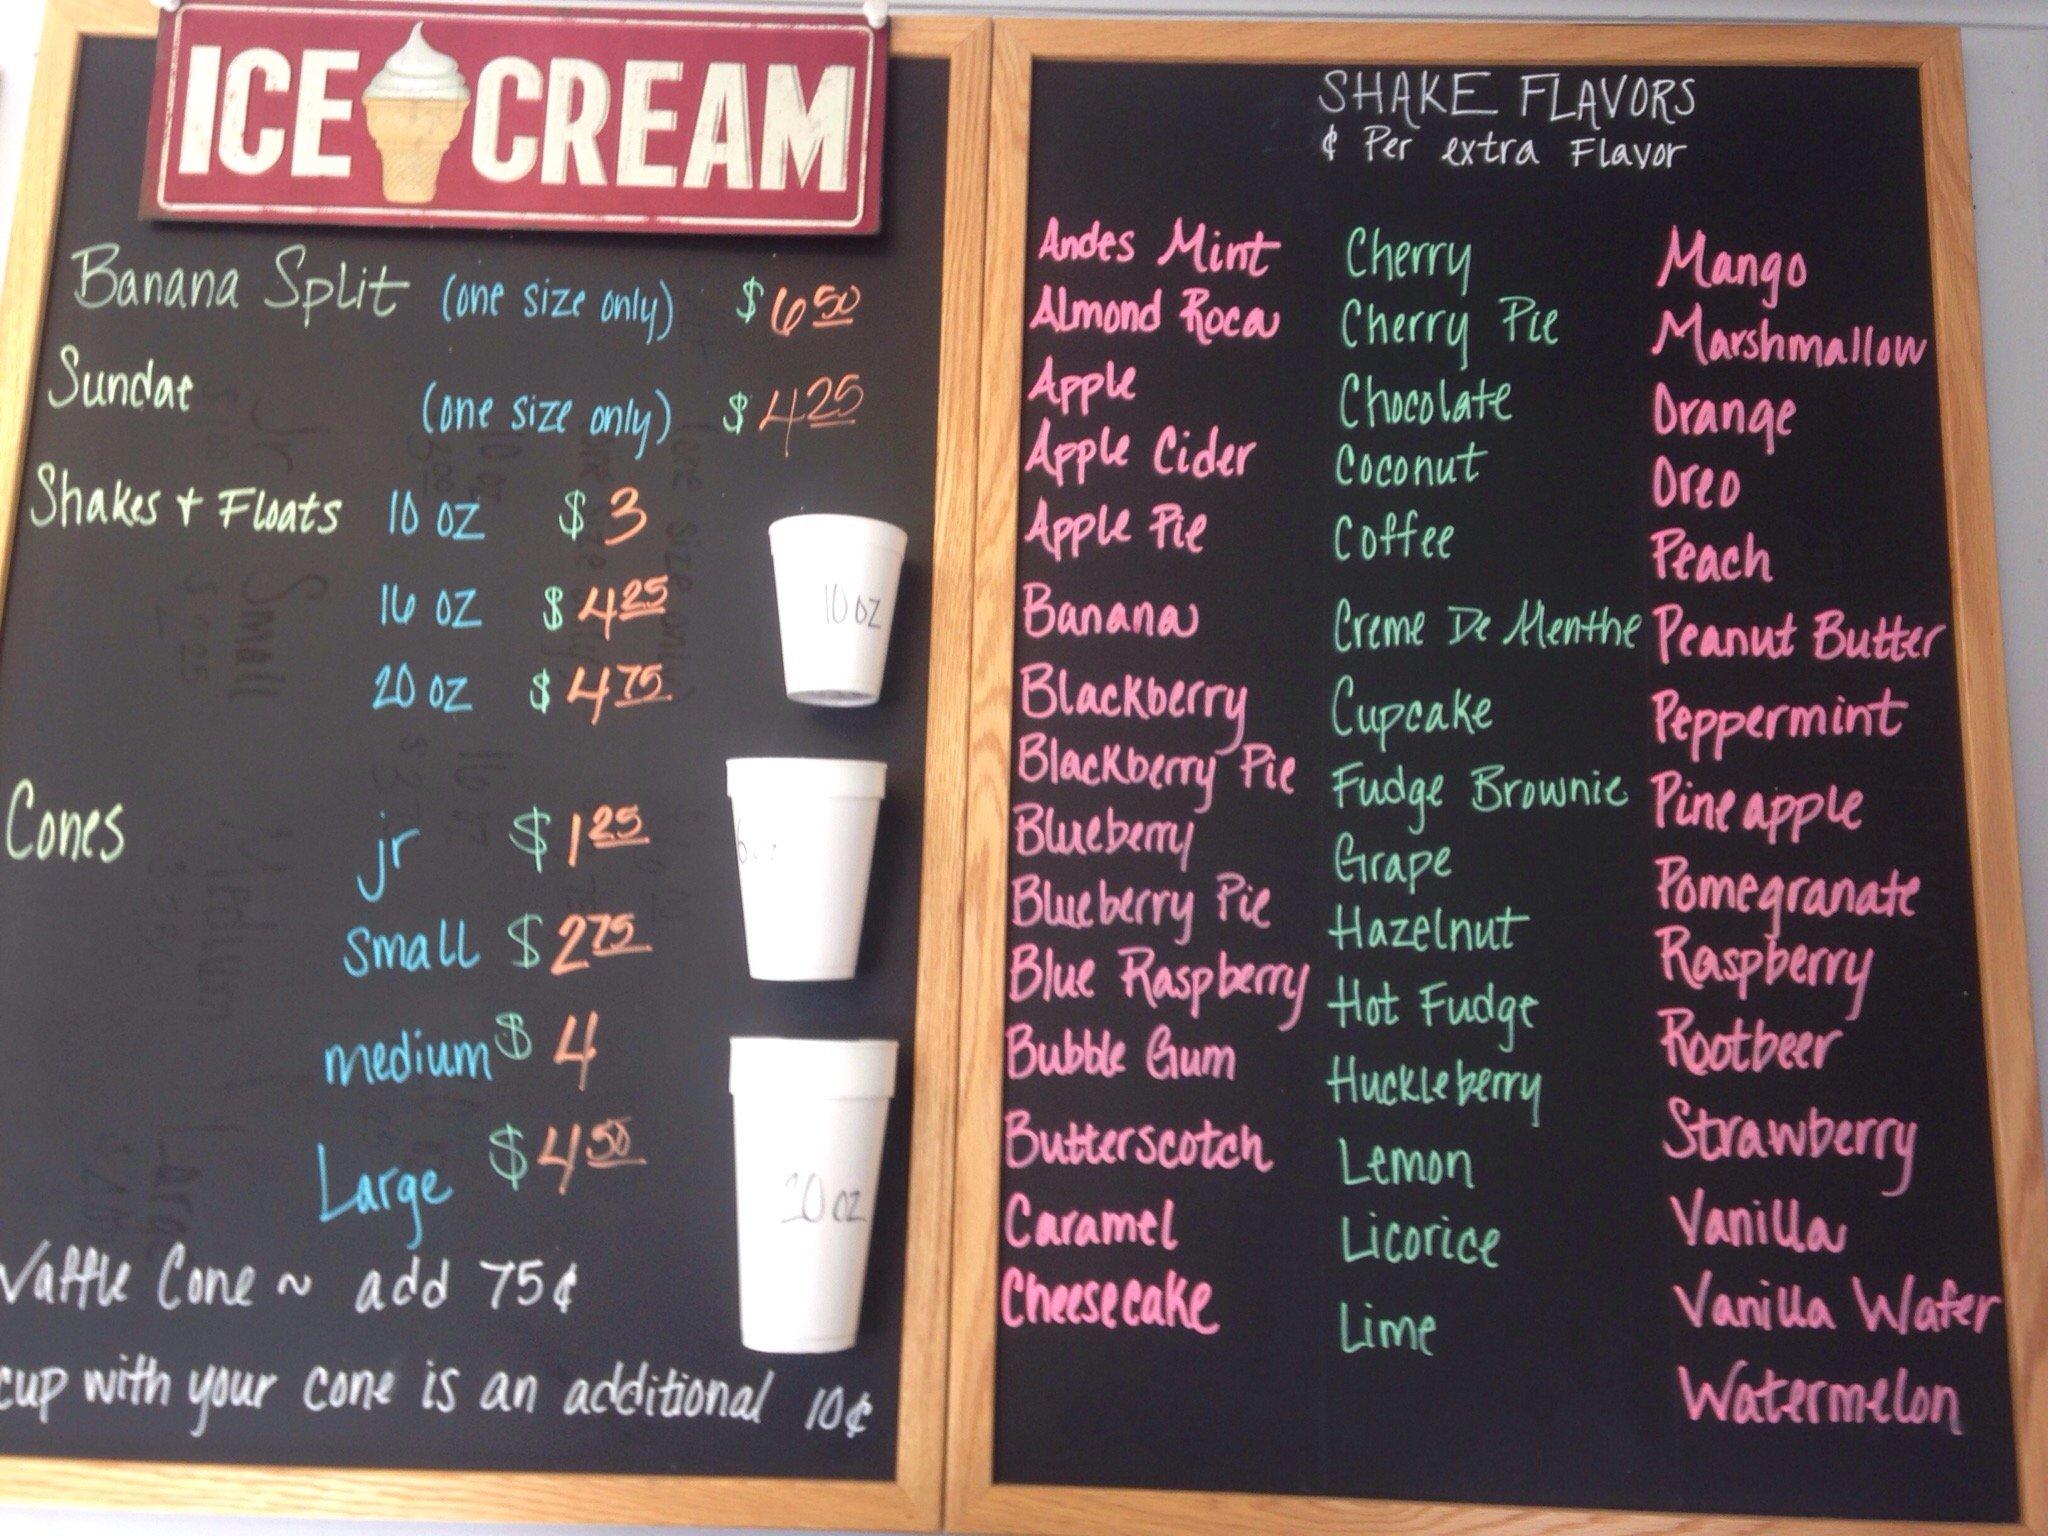 ICE CREAM
Banana Split (one size only) $6.50
Sundae (one size only) $4.25
Shakes + Floats 10 oz $3
16 oz $4.25
20 oz $4.75
Cones jr $1.25
small $2.75
medium $4
Large $4.50
Waffle Cone ~ add 75¢
cup with your cone is an additional 10¢
10 oz
20 oz
SHAKE FLAVORS
¢ Per extra Flavor
Andes Mint
Almond Roca
Apple
Apple Cider
Apple Pie
Banana
Blackberry
Blackberry Pie
Blueberry
Blueberry Pie
Blue Raspberry
Bubble Gum
Butterscotch
Caramel
Cheesecake
Cherry
Cherry Pie
Chocolate
Coconut
Coffee
Creme De Menthe
Cupcake
Fudge Brownie
Grape
Hazelnut
Hot Fudge
Huckleberry
Lemon
Licorice
Lime
Mango
Marshmallow
Orange
Oreo
Peach
Peanut Butter
Peppermint
Pineapple
Pomegranate
Raspberry
Rootbeer
Strawberry
Vanilla
Vanilla Wafer
Watermelon